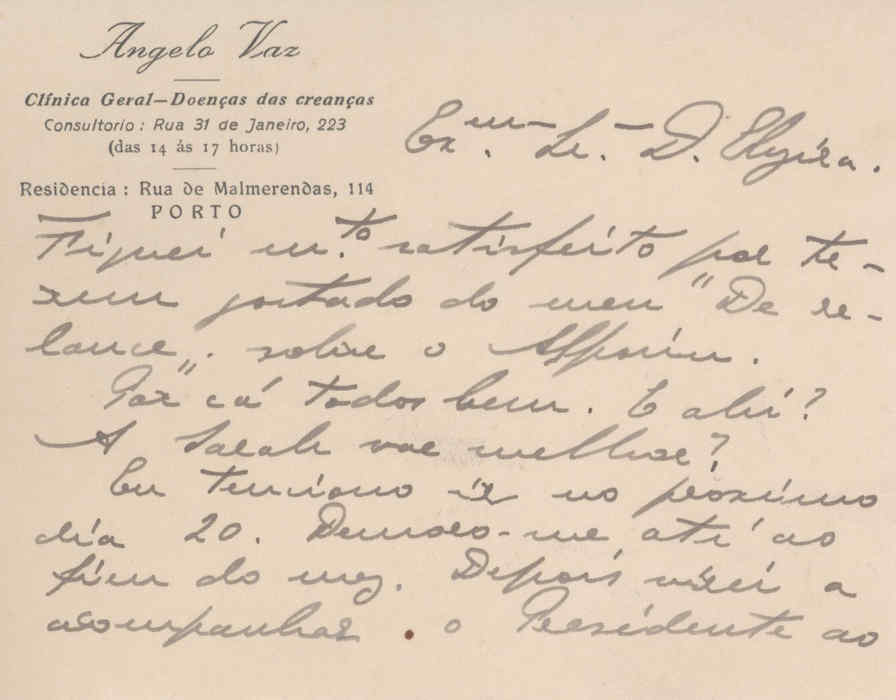 Angelo Vaz
Clínica Geral—Doenças das creanças
Consultorio: Rua 31 de Janeiro, 223
(das 14 ás 17 horas)
Residencia: Rua de Malmerendas, 114
PORTO
Ex.ma Sr.a D. Elzira.
Fiquei m.to satisfeito por te-
rem gostado do meu "De re-
lance", sobre o Alpoim.
Por cá todos bem. E ahi?
A Sarah vae melhor?
Eu tenciono ir no proximo
dia 20. Demoro-me até ao
fim do mez. Depois virei a
acompanhar o Presidente ao